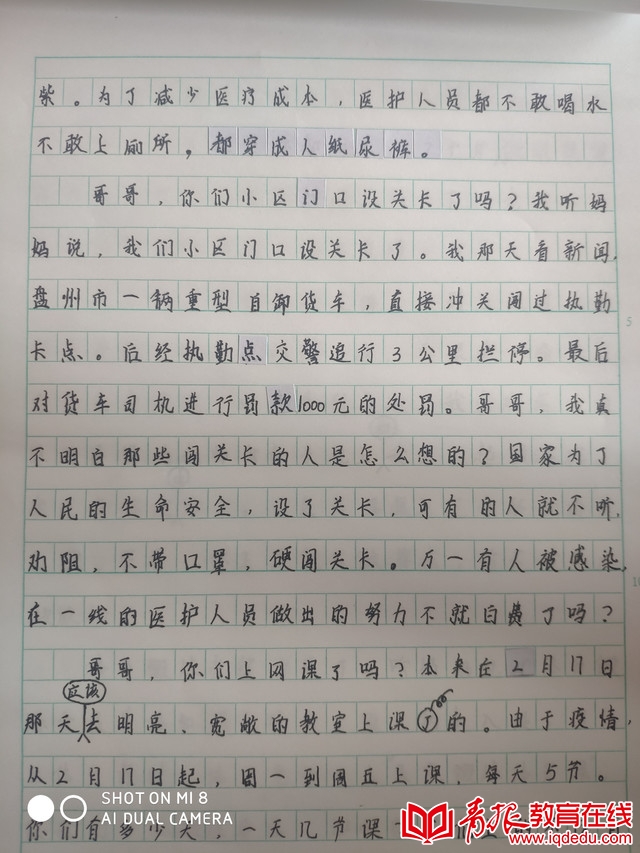 柴。为了减少医疗成本，医护人员都不敢喝水
不敢上厕所，都穿成人纸尿裤。
哥哥，你们小区门口设关卡了吗？我听妈
妈说，我们小区门口设关卡了。我那天看新闻，
盘州市一辆重型自卸货车，直接冲关闯过执勤
卡点。后经执勤点交警追行3公里拦停。最后
对货车司机进行罚款1000元的处罚。哥哥，我真
不明白那些闯关卡的人是怎么想的？国家为了
人民的生命安全，设了关卡，可有的人就不听
劝阻，不带口罩，硬闯关卡。万一有人被感染，
在一线的医护人员做出的努力不就白费了吗？
哥哥，你们上网课了吗？本来在2月17日
应该
那天去明亮、宽敞的教室上课了的。由于疫情，
从2月17日起，周一到周五上课，每天5节。
你们有多少天，一天几节课
5
10
SHOT ON MI 8
AI DUAL CAMERA
青报教育在线
www.iqdedu.com